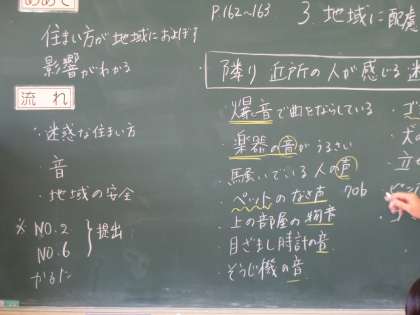 めあて
住まい方が地域におよぼす
影響がわかる
流れ
・迷惑な住まい方
音
・地域の安全
※ NO.2
NO.6
提出
かるた
P.162～163
3. 地域に配慮
隣り近所の人が感じる迷
・爆音で曲をならしている
・楽器の音がうるさい
・騒いでいる人の声
・ペットのなき声 70b
・上の部屋の物音
・目ざまし時計の音
・そうじ機の音
犬の
立